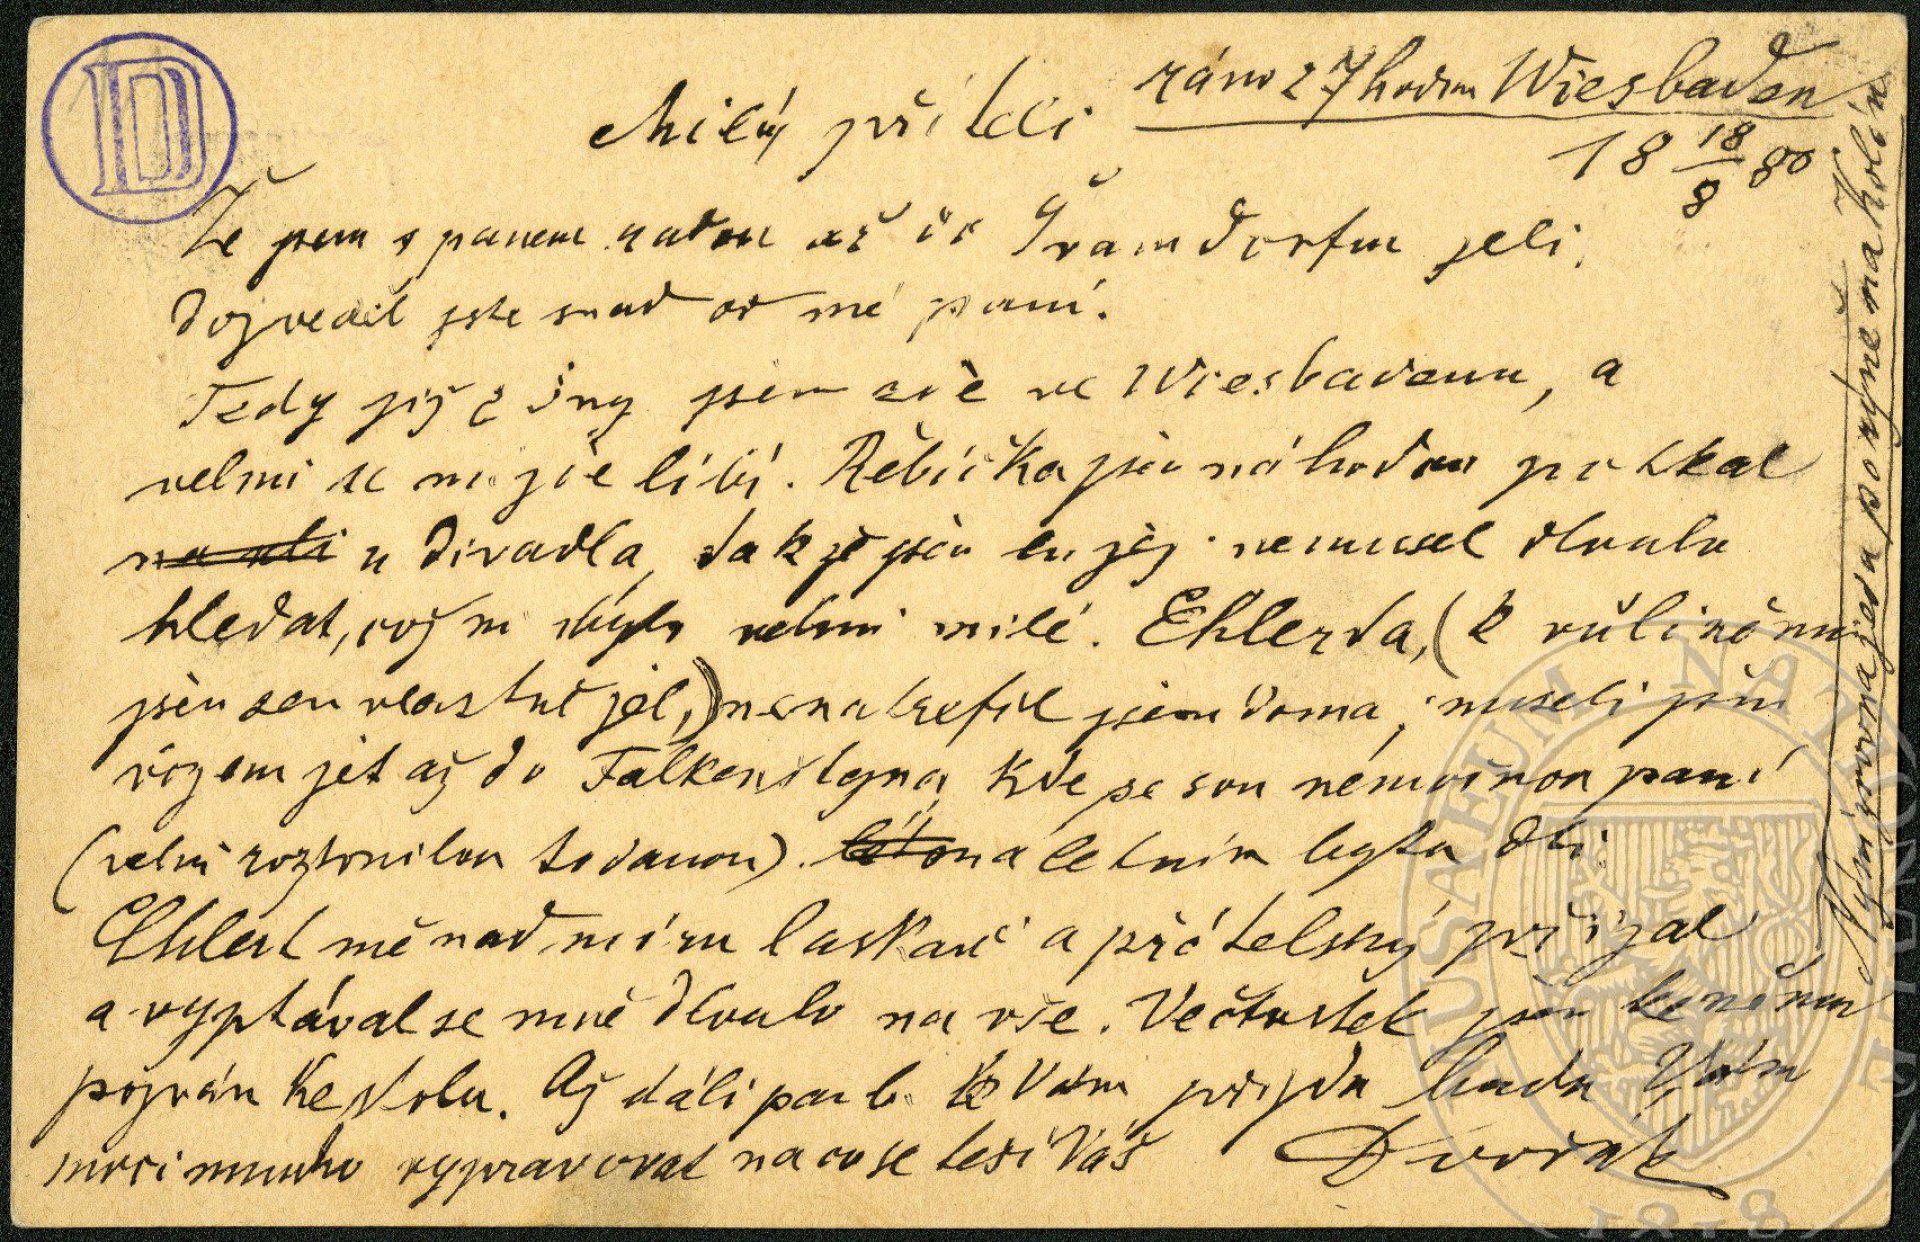 D
ráno 7 hodin Wiesbaden
Milý příteli
18 18/8 80
Že jsem s panem radou až do jeli,
dozvěděl jste snad od mé paní.
Tedy již 2 dny jsem zde ve Wiesbadenu, a
velmi se mi zde líbí. Řebíčka jsem náhodou potkal
u divadla, takže jsem jej nemusel dlouho
hledat, což mi bylo velmi milé. Ehlerta, (k vůli němuž
jsem sem vlastně jel,) nenatrefil jsem doma, museli jsme
jet až do Falkensteina, kde se svou nemocnou paní
(velmi roztomilou dámou). na letním bytu dlí.
Ehlert mě nad míru laskavě a přátelsky přijal
a vyptával se mně dlouho na vše. Ve čtvrtek jsem k němu
pozván ke stolu. Až dá-li pan b. k Vám přijdu budu Vám
moci mnoho vypravovat na co se těší Váš Dvořák
Nyní zrovna jedu po Rýně na Kolín
MUSAEUM NATIONALE
1818